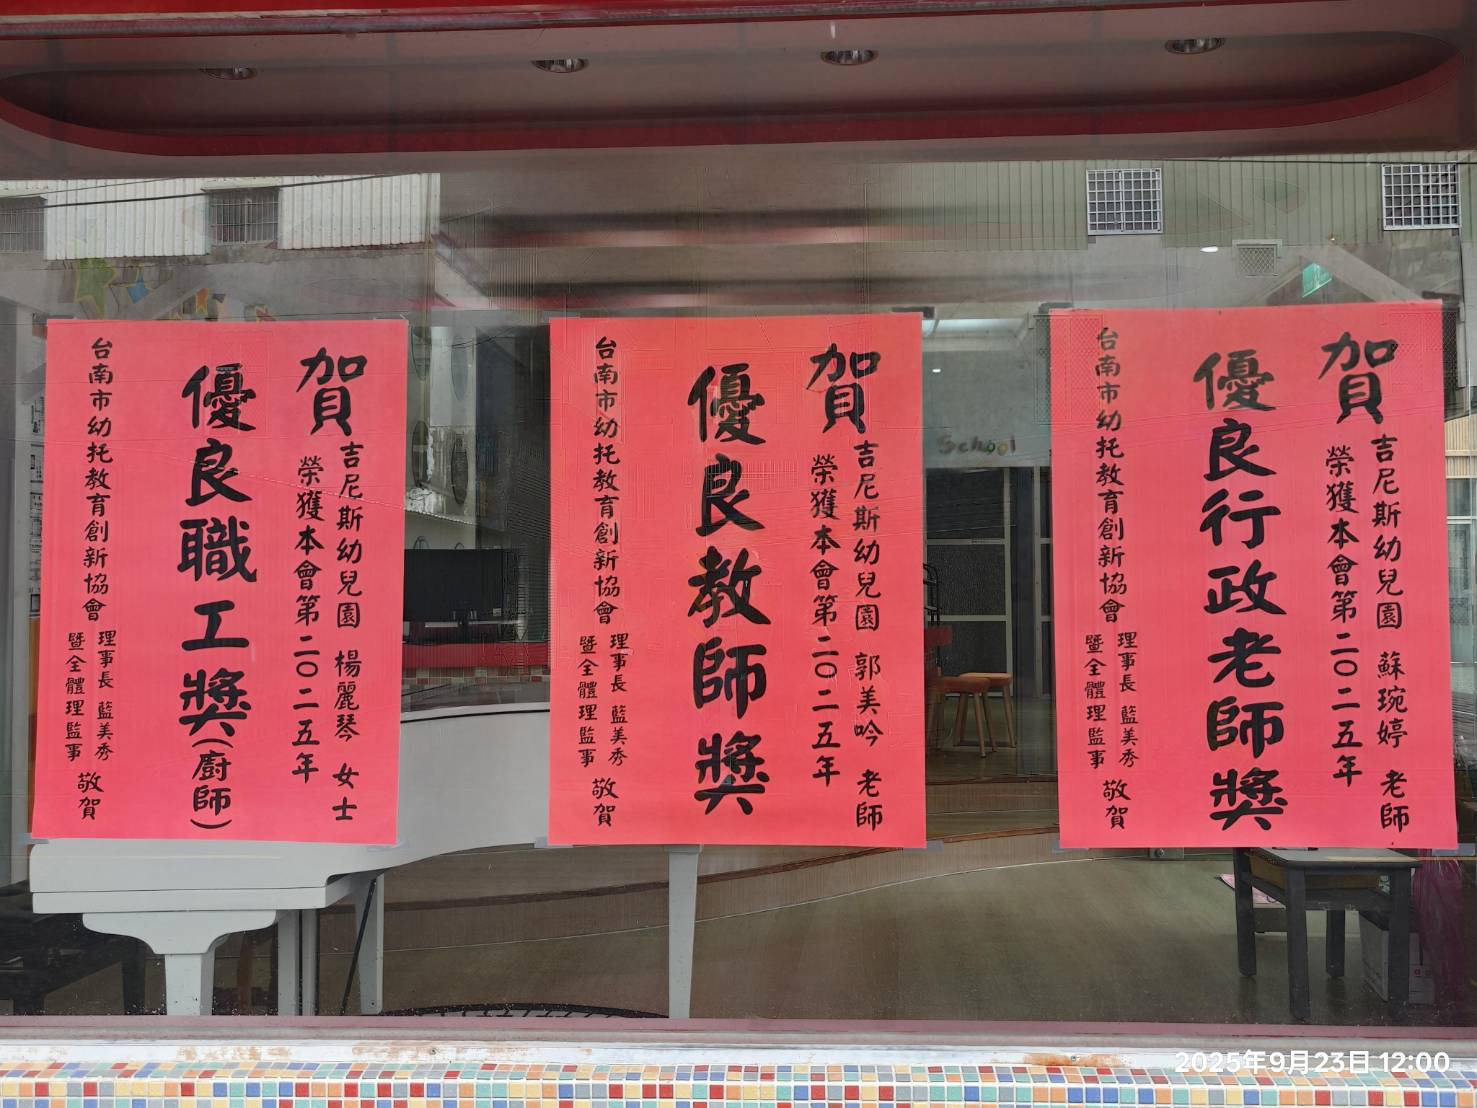 賀
吉尼斯幼兒園 蘇琬婷 老師
榮獲本會第二〇二五年
優良行政老師獎
台南市幼托教育創新協會
理事長 藍美秀
暨全體理監事
敬賀
賀
吉尼斯幼兒園 郭美吟 老師
榮獲本會第二〇二五年
優良教師獎
台南市幼托教育創新協會
理事長 藍美秀
暨全體理監事
敬賀
賀
吉尼斯幼兒園 楊麗琴 女士
榮獲本會第二〇二五年
優良職工獎(廚師)
台南市幼托教育創新協會
理事長 藍美秀
暨全體理監事
敬賀
School
2025年9月23日 12:00